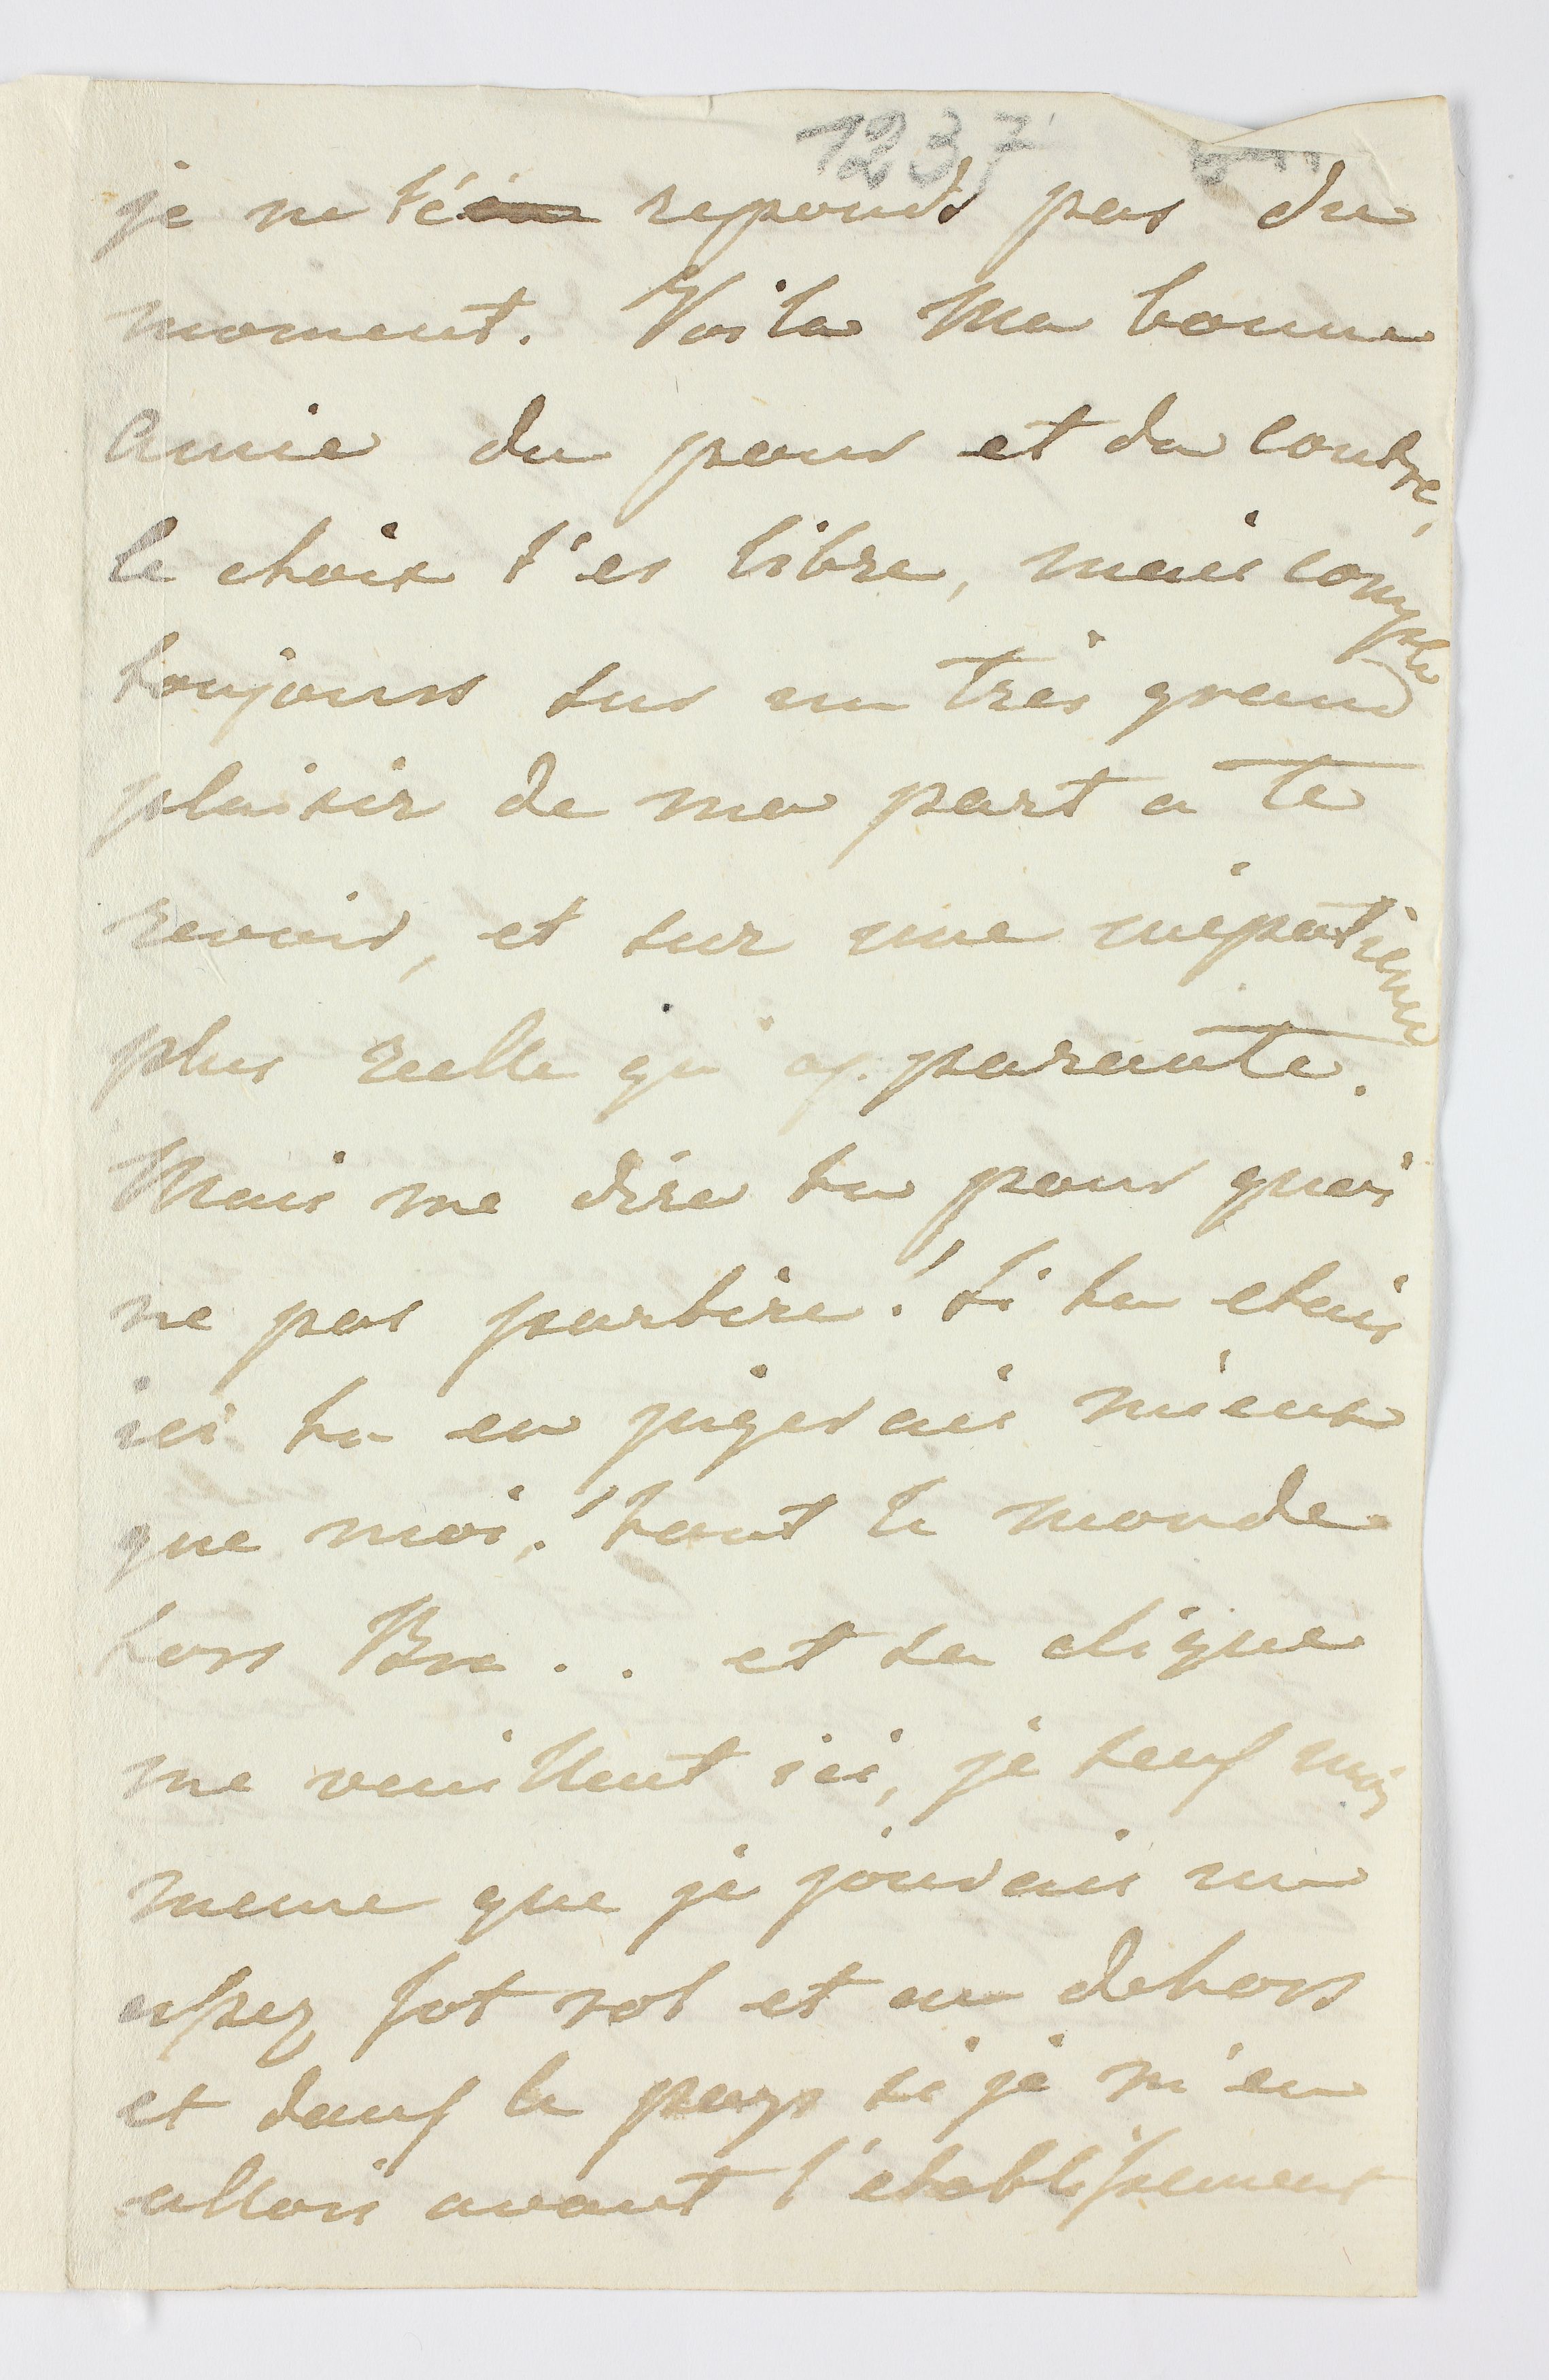 1237
je ne té reponds pas du
moment. Voila Ma bonne
Amie du pour et du contre,
le choix t'es libre, mais compte
toujours sur un très grand
plaisir de ma part a te
revoir, et sur une impatience
plus reelle qu'apparente.
Mais me dira tu pour quoi
ne pas partire! Si tu etais
ici tu en jugerais mieux
que moi! tout le monde
hors Bre . . et sa clique
me veuillent ici, je sens moi
meme que je jouerais un
assez sot rol et au dehors
et dans le pays si je m'en
allois avant l'etablissement